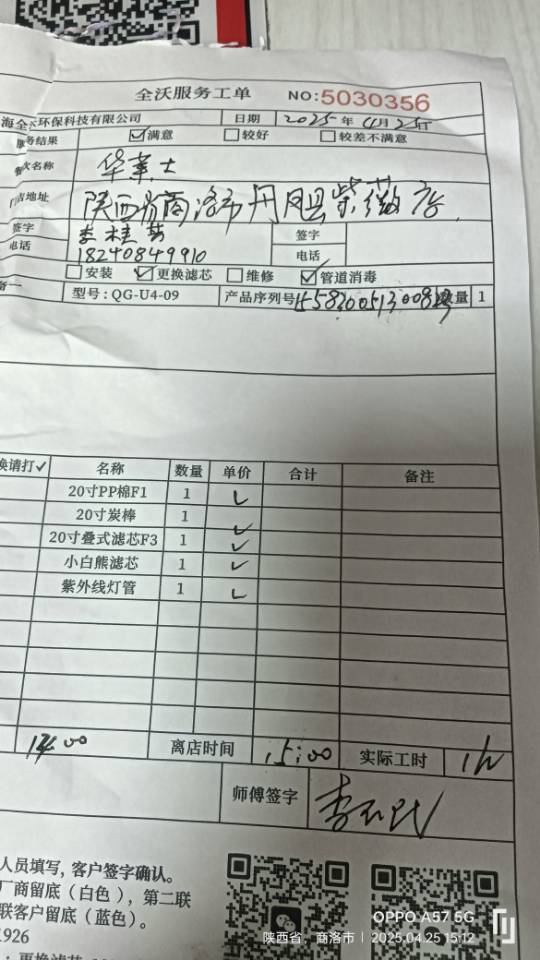 全沃服务工单 NO:5030356
海全沃环保科技有限公司 日期 2025年4月25日
服务结果 ☑满意 □较好 □较差不满意
名称 华莱士
地址 陕西省商洛市丹凤县紫薇店
签字 李桂 签字
电话 18240849910 电话
□安装 ☑更换滤芯 □维修 ☑管道消毒
型号:QG-U4-09 产品序列号 数量 1
换请打✓ 名称 数量 单价 合计 备注
20寸PP棉F1 1 ✓
20寸炭棒 1 ✓
20寸叠式滤芯F3 1 ✓
小白熊滤芯 1 ✓
紫外线灯管 1 ✓
14:00 离店时间 15:00 实际工时 1h
师傅签字 李
人员填写,客户签字确认。
厂商留底(白色),第二联
联客户留底(蓝色)。
1926
:更换滤芯
OPPO A57 5G
陕西省,商洛市 | 2025.04.25 15:12